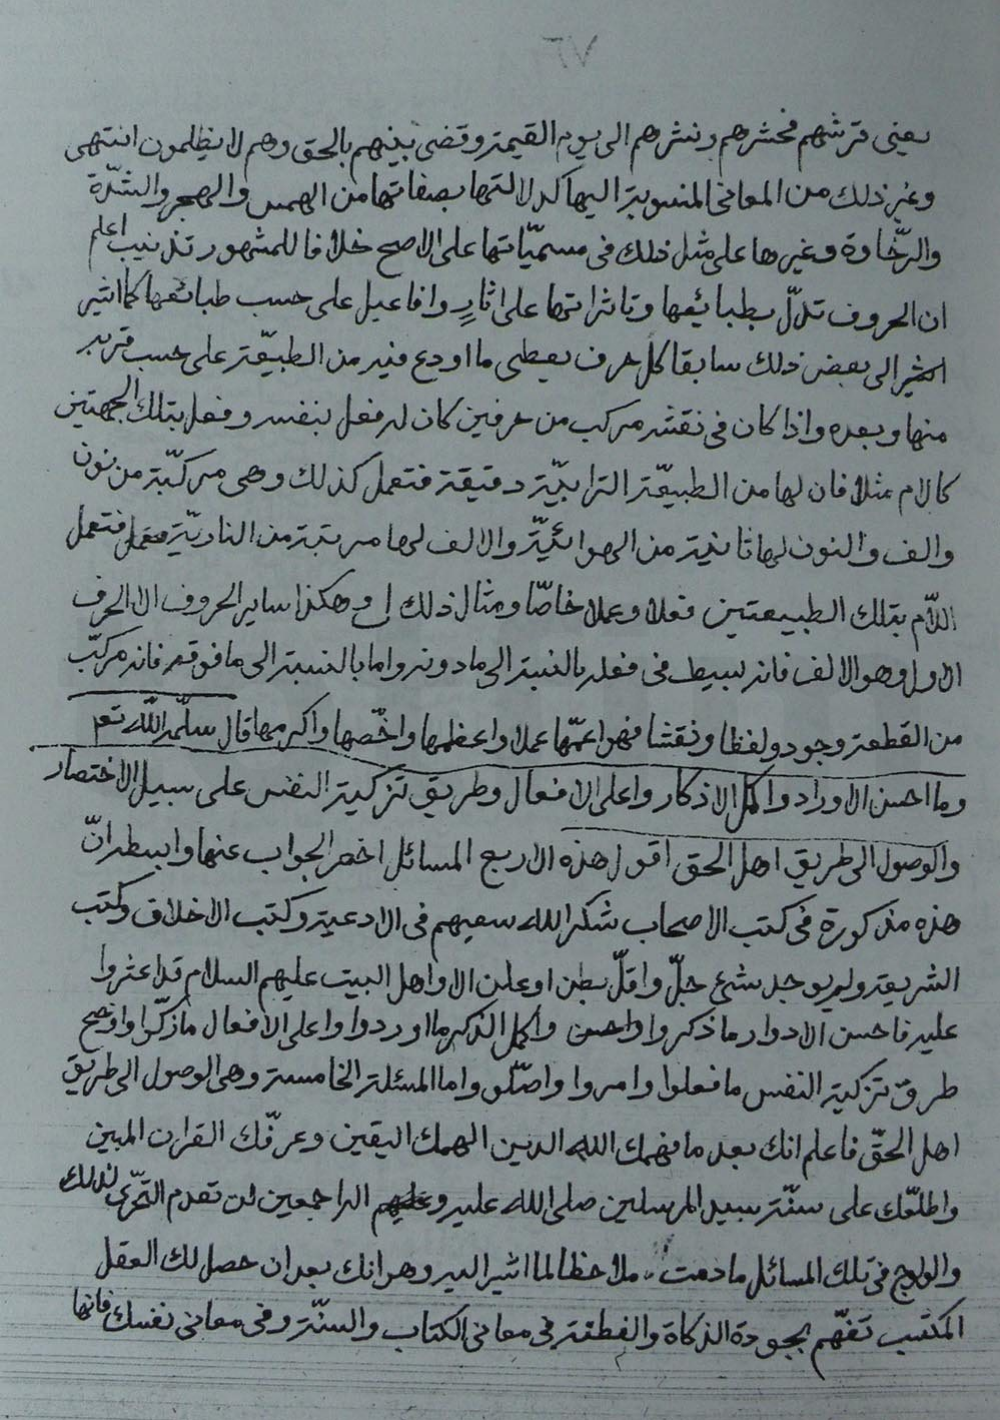 ٧٦
يعنى قرشهم فحشرهم ونشرهم الى يوم القيمة وقضى بينهم بالحق وهم لا يظلمون انتهى
وغير ذلك من المعانى المنسوبة اليها كدلالتها بصفاتها من الهمس والجهر والشدّة
والرخاوة وغيرها على مثل ذلك فى مسمّياتها على الاصح خلافا للمشهور تذنيب اعلم
ان الحروف تدلّ بطبائعها وتاثراتها على اثارٍ وافاعيل على حسب طبائعها كما اشير
الى بعض ذلك سابقا كل حرف يعطى ما اودع فيه من الطبيعة على حسب قربه
منها وبعده واذا كان فى نقشه مركب من حرفين كان له فعل بنفسه وفعل بتلك الجهتين
كالام مثلا فان لها من الطبيعة الترابيّة دقيقة فتعمل كذلك وهى مركّبة من نون
والف والنون لها ثانية من الهوائيّة والالف لها مرتبة من الناريّة فتعمل
اللّام بتلك الطبيعتين فعلا وعملا خاصّا ومثال ذلك ل وهكذا ساير الحروف الا الحرف
الاول وهو الالف فانه بسيط فى فعله بالنسبة الى ما دونه واما بالنسبة الى ما فوقه فانه مركّب
من النقطة وجودو لفظا ونقشا فهو اعمّها عملا واعظمها واخصّها واكرمها قال سلّمه اللّه تعم
وما احسن الاوراد واكمل الاذكار واعلى الافعال وطريق تزكية النفس على سبيل الاختصار
والوصول الى طريق اهل الحق اقول هذه الاربع المسائل اخصر الجواب عنها وابسطه انّ
هذه مذكورة فى كتب الاصحاب شكر الله سعيهم فى الادعية وكتب الاخلاق وكتب
الشريعة ولم يوجد شئ جلّ واقلّ بطن او علن الا واهل البيت عليهم السلام قد اعثروا
عليه فاحسن الادوار ما ذكروا واكمل الذكر ما اوردوا واعلى الافعال ما ذكّروا واوضح
طرق تزكية النفس ما فعلوا وامروا واصّلو واما المسئلة الخامسة وهى الوصول الى طريق
اهل الحقّ فاعلم انك بعد ما فهمك الله الدين الهمك اليقين وعرّفك القران المبين
واطلعّك على سنّة سيد المرسلين صلى الله عليه و اله اجمعين لن تعدم التحرّى لذلك
والولوج فى تلك المسائل ما دمت ملاحظا لما اشير اليه وهو انك بعد ان حصل لك العقل
المكتسب تفهّم بجودة الذكاة والفطنة فى معانى الكتاب والسنّة وفى معانى نفسك فانها